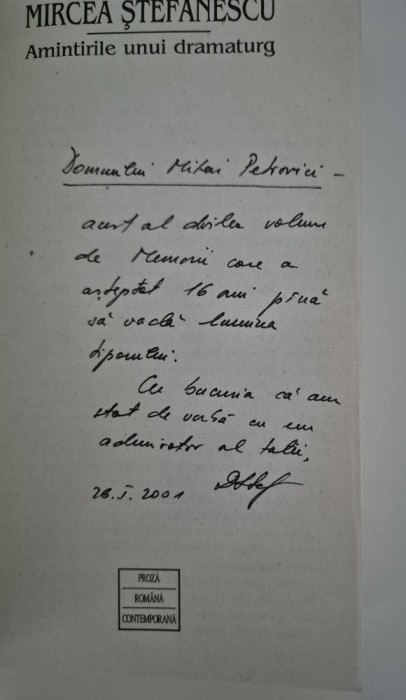 MIRCEA ȘTEFĂNESCU
Amintirile unui dramaturg
Domnului Mihai Petrovici –
acest al doilea volum
de Memorii care a
așteptat 16 ani pînă
să vadă lumina
tiparului.
Cu bucuria că am
stat de vorbă cu un
admirator al tatii,
26.I.2001
PROZĂ
ROMÂNĂ
CONTEMPORANĂ